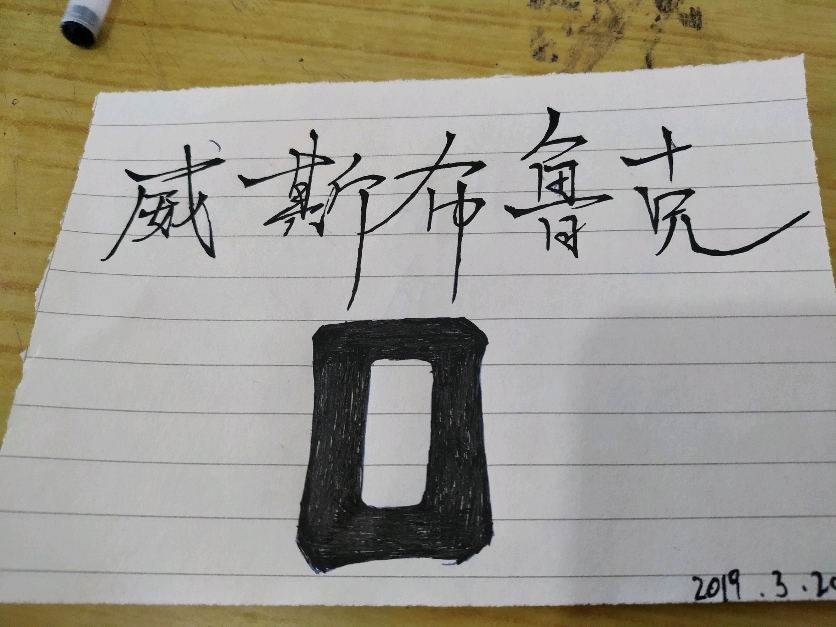 威斯布鲁克
0
2019.3.20